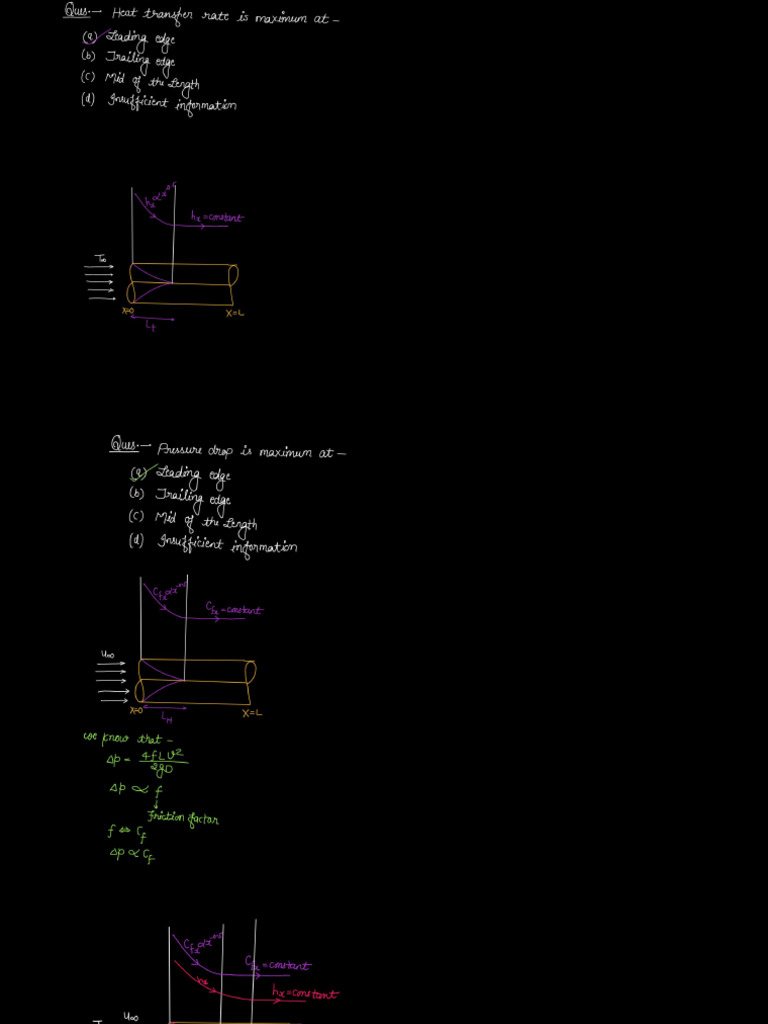 Ques.— Heat transfer rate is maximum at —
(a) Leading edge
(b) Trailing edge
(c) Mid of the Length
(d) Insufficient information
hx ∝ x^-0.5
hx = constant
T∞
x=0
x=L
Lt
Ques.— Pressure drop is maximum at —
(a) Leading edge
(b) Trailing edge
(c) Mid of the Length
(d) Insufficient information
Cfx ∝ x^-0.5
Cfx = constant
u∞
x=0
x=L
LH
we know that —
Δp = 4fLV²/2gD
Δp ∝ f
↓
Friction factor
f ⇔ Cf
Δp ∝ Cf
Cfx ∝ x^-0.5
Cfx = constant
hx
hx = constant
u∞